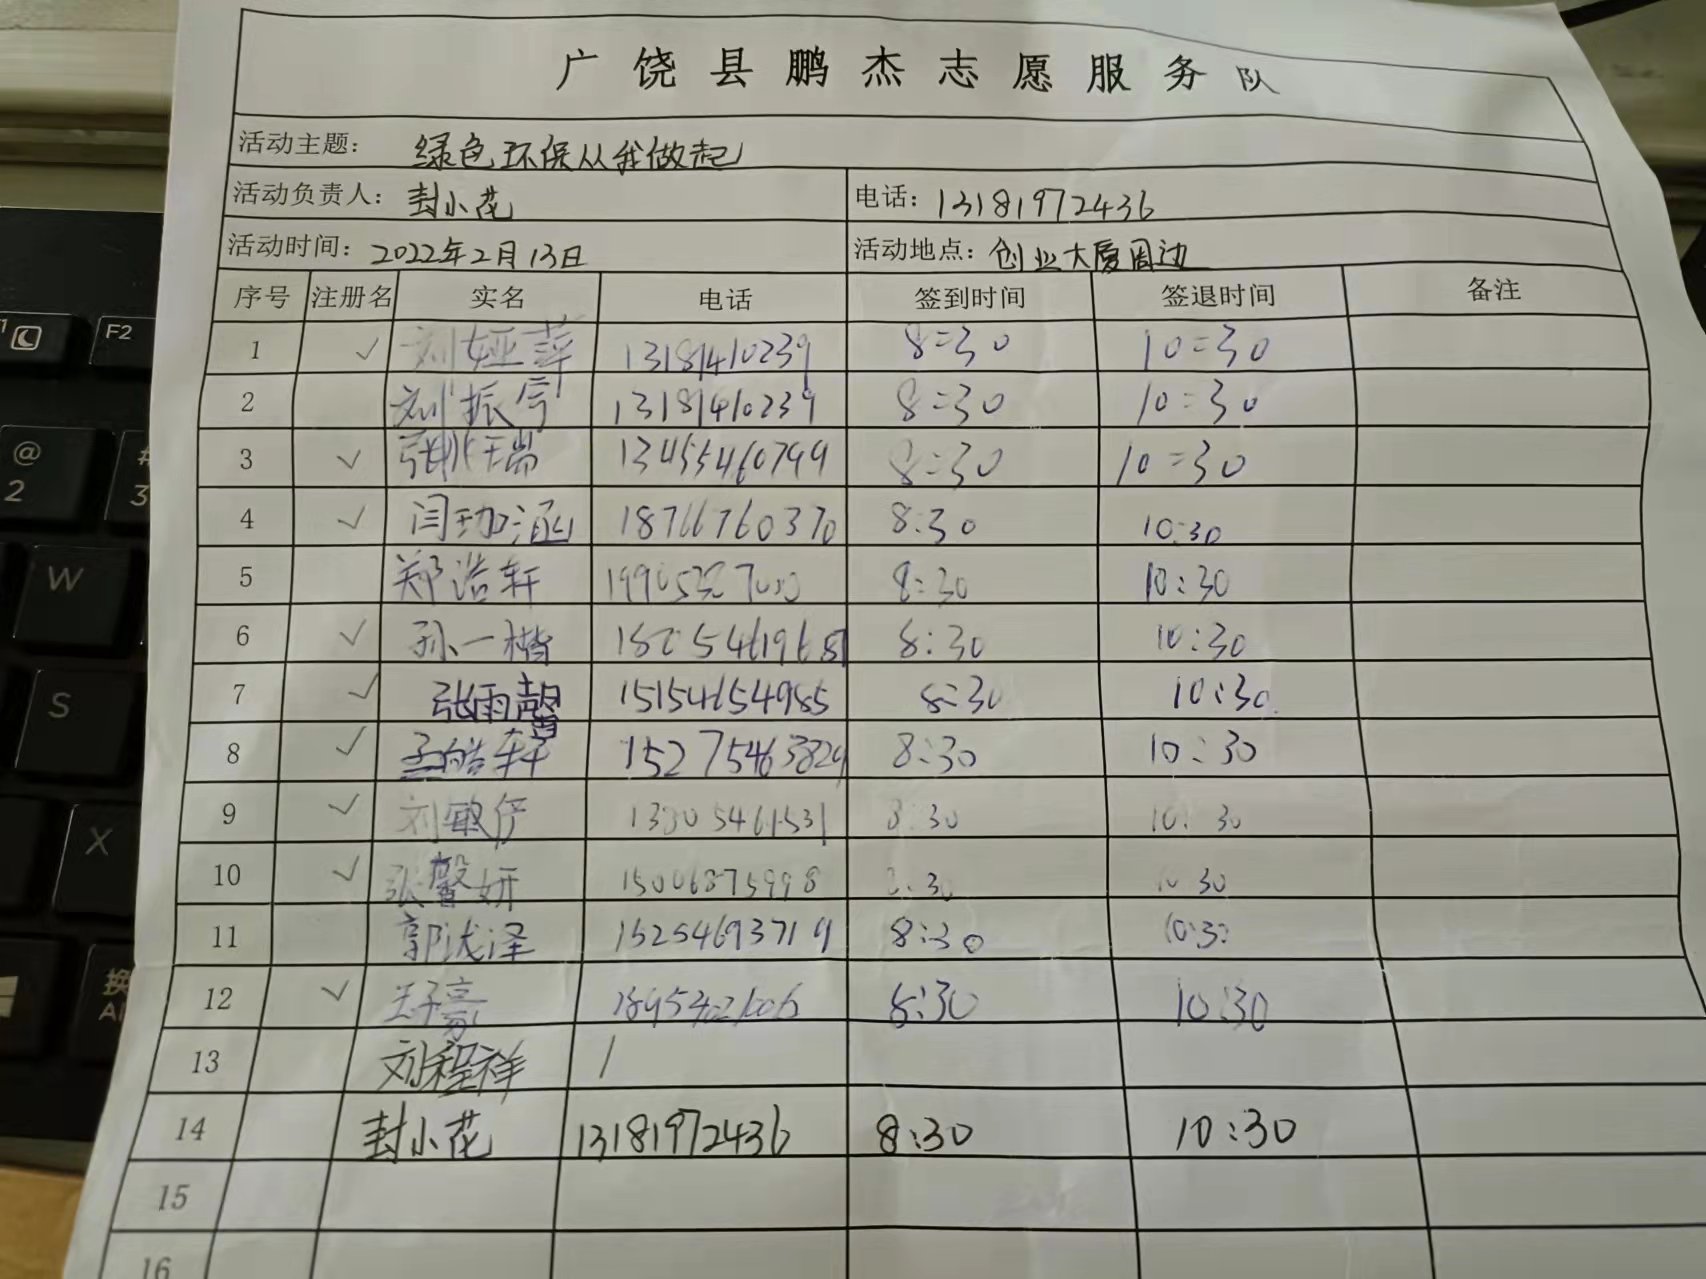 广饶县鹏杰志愿服务队
活动主题： 绿色环保从我做起
活动负责人： 封小花 电话：13181972436
活动时间：2022年2月13日 活动地点：创业大厦周边
序号 注册名 实名 电话 签到时间 签退时间 备注
1 ✓ 刘娅萍 13181410239 8:30 10:30
2 刘振 13181410239 8:30 10:30
3 ✓ 13455460799 8:30 10:30
4 ✓ 闫珈涵 18766760370 8:30 10:30
5 郑浩轩 8:30 10:30
6 ✓ 孙一楷 8:30 10:30
7 ✓ 张雨馨 15154654985 8:30 10:30
8 ✓ 孟皓轩 15275463829 8:30 10:30
9 ✓ 刘敏 8:30 10:30
10 ✓ 张馨妍 15006875998 8:30 10:30
11 郭泽 15254693719 8:30 10:30
12 ✓ 王子豪 8:30 10:30
13 刘程祥 /
14 封小花 13181972436 8:30 10:30
15
16
F2
@
2
#
3
W
S
X
换